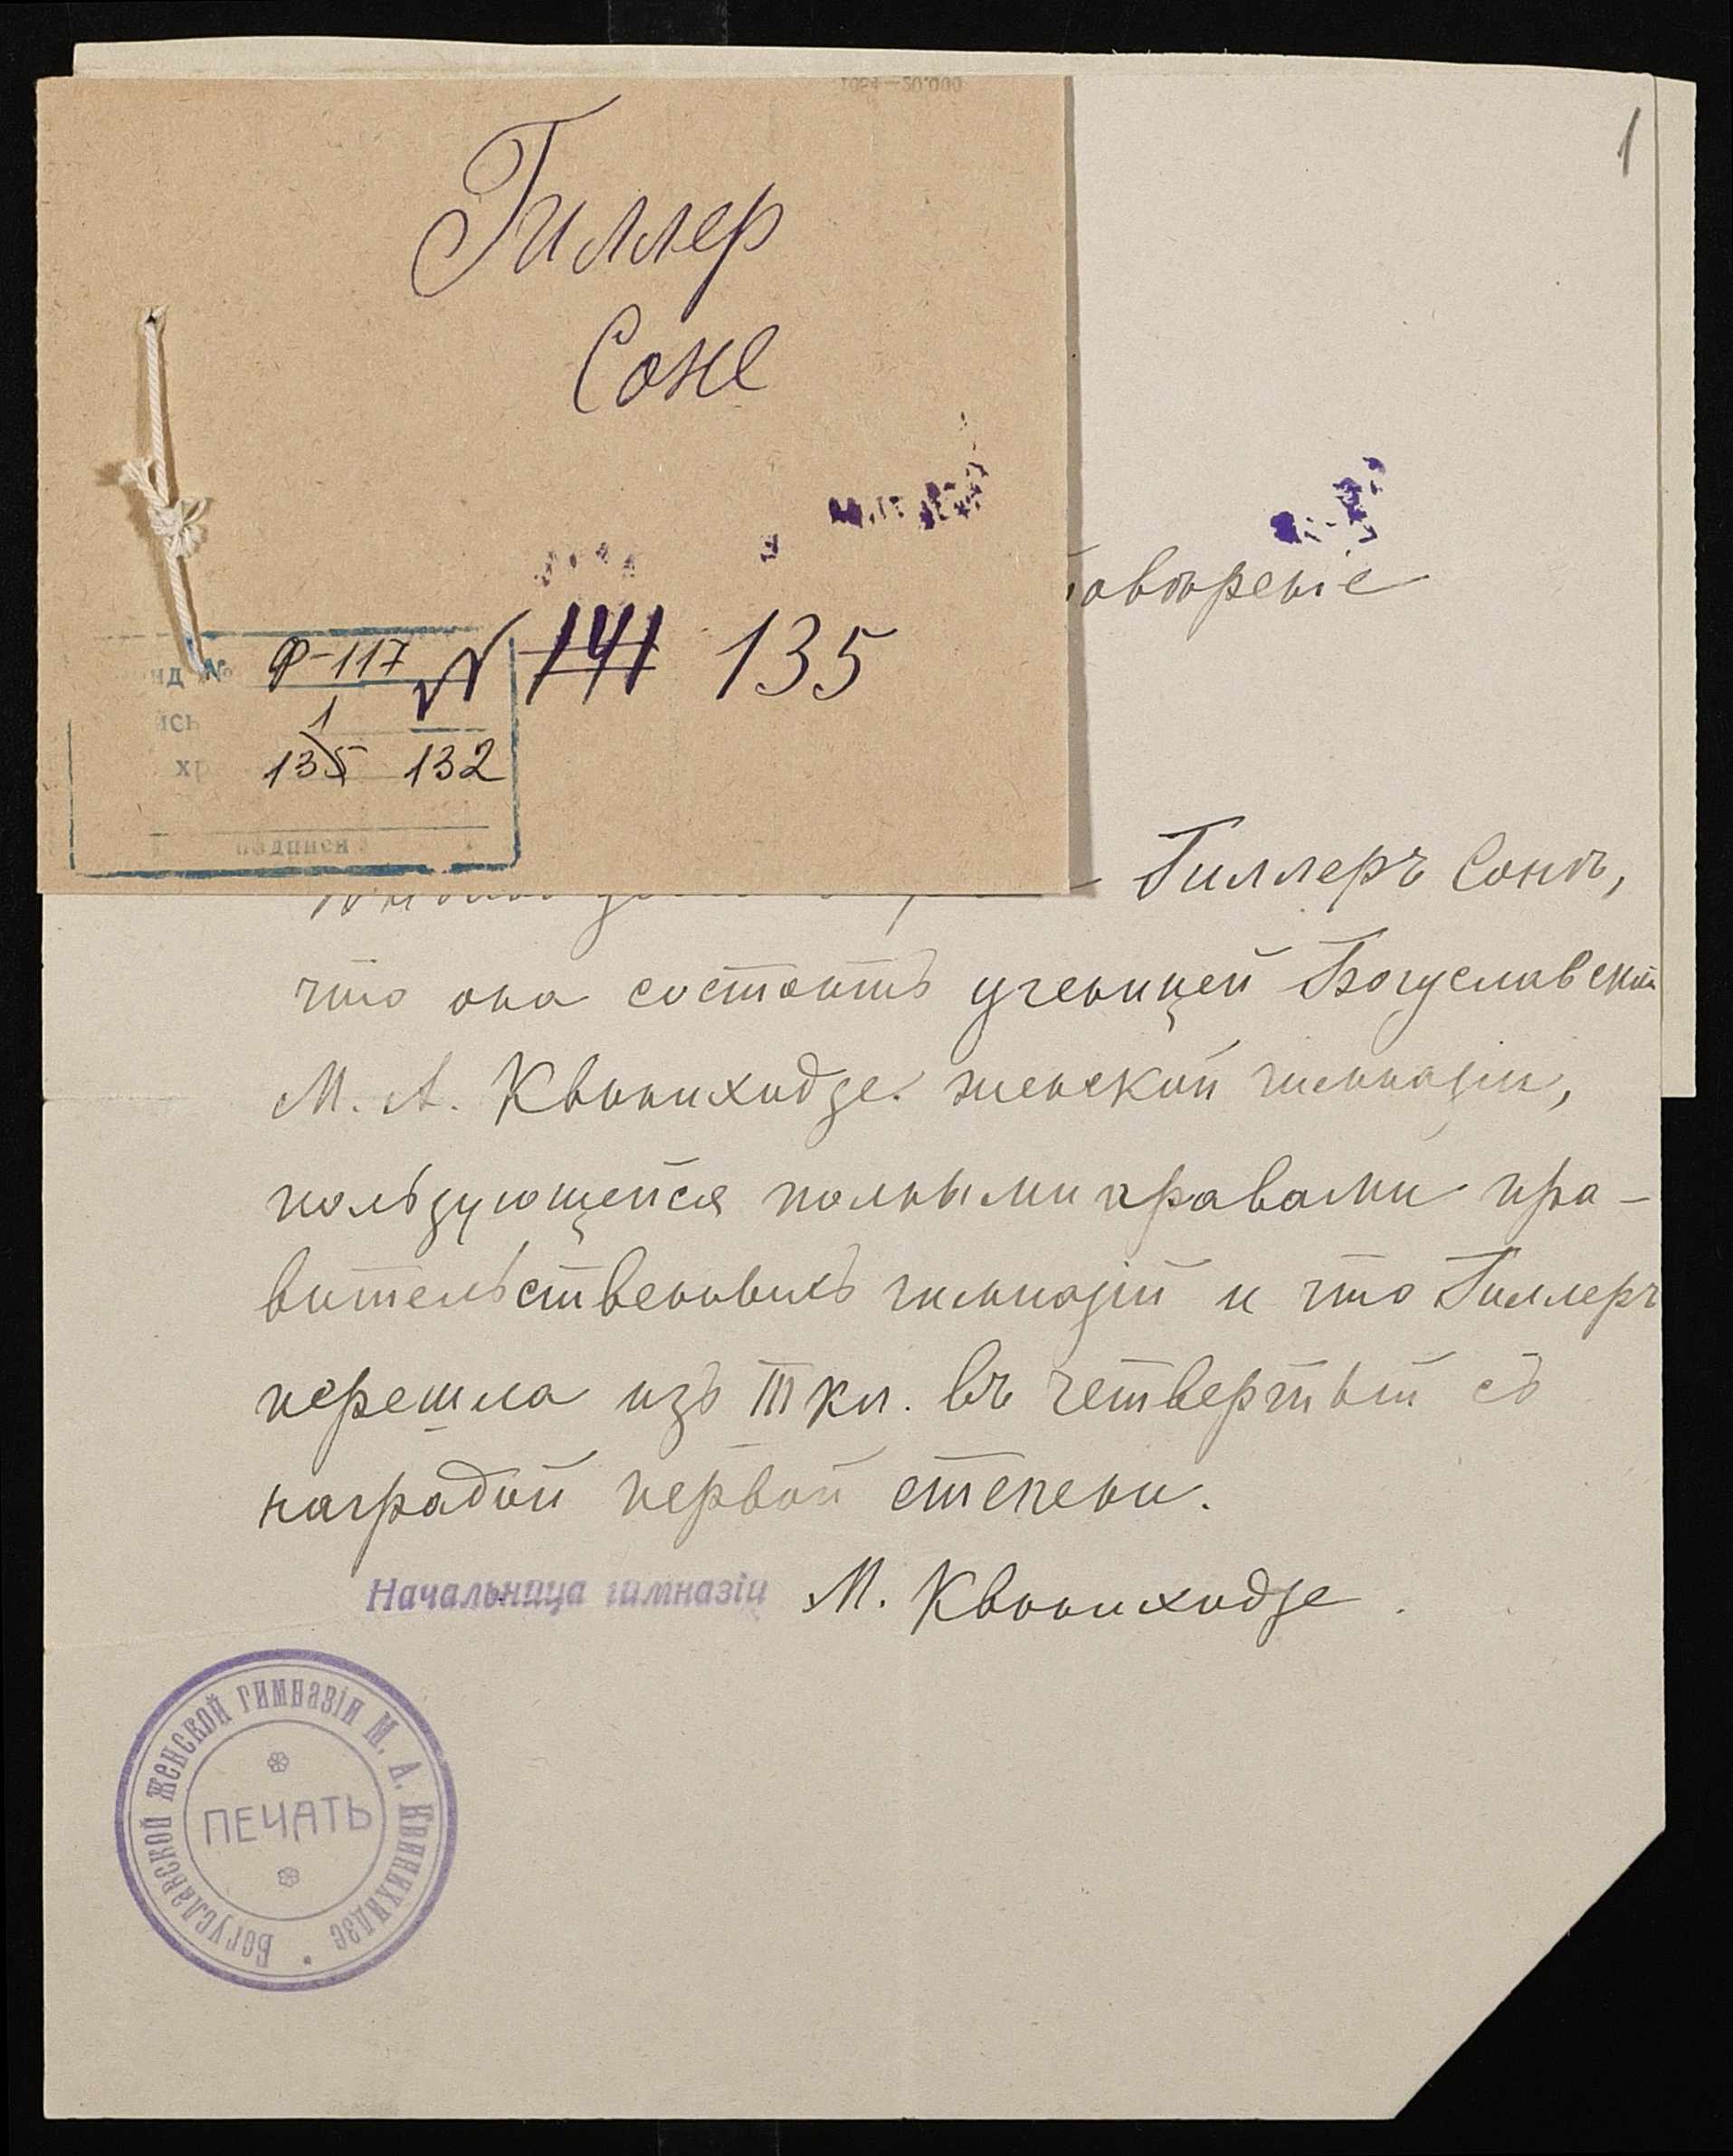 Гиллер
Соне
№ 141 135
Ф-117
1
135 132
1
Гиллеръ Сонѣ,
что она состоитъ ученицей Богуславской
М. А. Квинихидзе женской гимназіи,
пользующейся полными правами пра-
вительственныхъ гимназій и что Гиллеръ
перешла изъ III кл. въ четвертый съ
наградой первой степени.
Начальница гимназіи М. Квинихидзе.
Богуславской женской гимназіи М. А. Квинихидзе
ПЕЧАТЬ